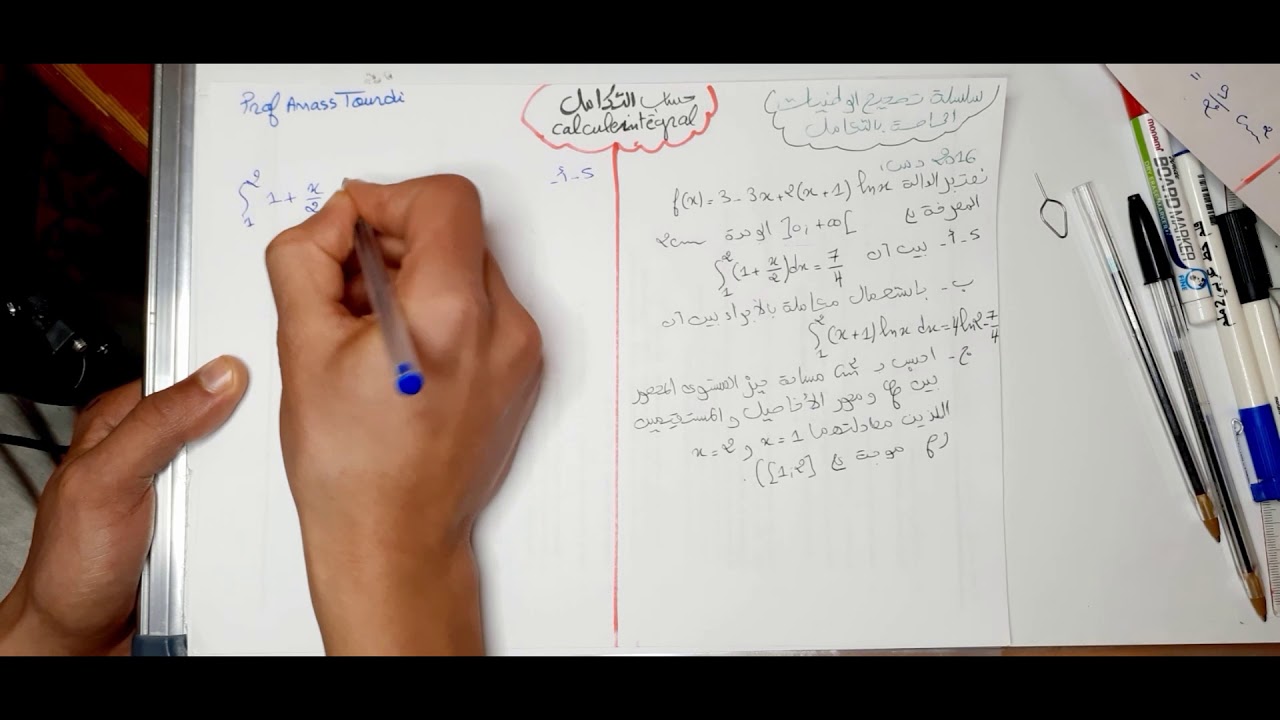 Prof Anass Tourdi
حساب التكامل
calcule intégral
سلسلة تصحيح الوطنيات
الخاصة بالتكامل
2016
نعتبر الدالة f(x) = 3 - 3x + 2(x+1) ln x
المعرفة ع ]0, +∞[ الوحدة 2cm
5-أ- بين أن
∫₁² (1 + x/2) dx = 7/4
ب- باستعمال مكاملة بالأجزاء بين أن
∫₁² (x+1) ln x dx = 4 ln 2 - 7/4
ج- احسب ب cm² مساحة حيز المستوى المحصور
بين Cf ومحور الأفاصيل و المستقيمين
اللذين معادلتهما x = 1 و x = 2
موجبة ع [1,2])
5-أ-
∫₁² 1 + x/2
monami
BOARD
MARKER